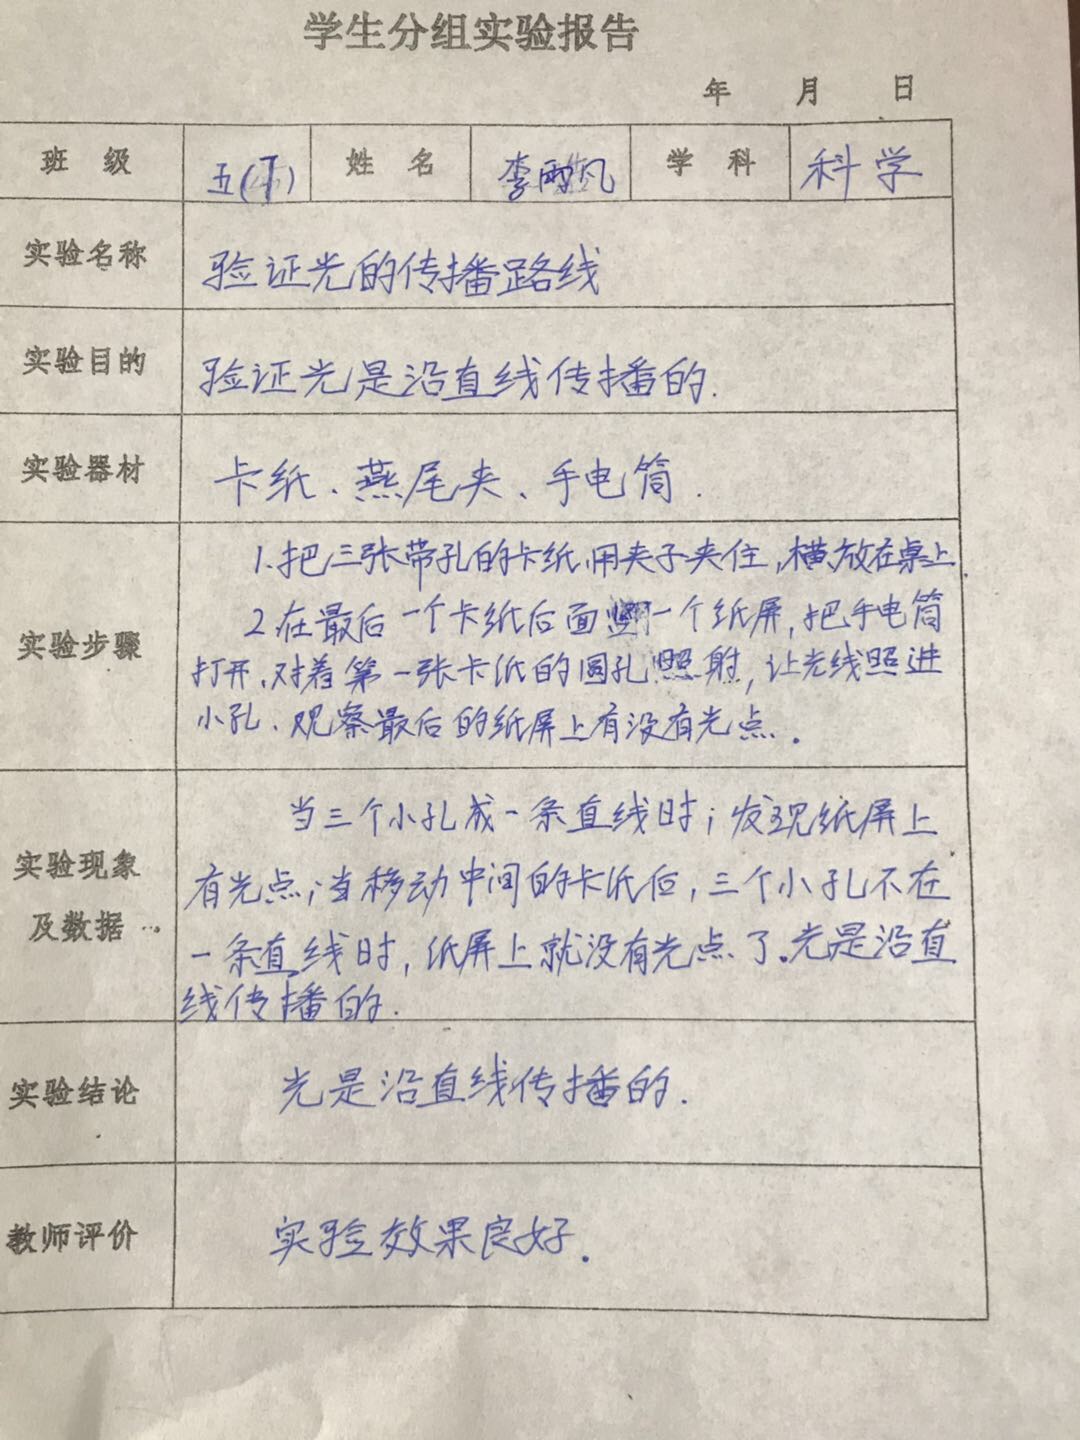 学生分组实验报告
年 月 日
班 级 五(丁) 姓 名 李雨凡 学 科 科学
实验名称 验证光的传播路线
实验目的 验证光是沿直线传播的.
实验器材 卡纸、燕尾夹、手电筒.
实验步骤
1.把三张带孔的卡纸用夹子夹住,横放在桌上.
2.在最后一个卡纸后面竖一个纸屏,把手电筒
打开、对着第一张卡纸的圆孔照射,让光线照进
小孔、观察最后的纸屏上有没有光点.
实验现象
及数据
当三个小孔成一条直线时;发现纸屏上
有光点;当移动中间的卡纸后,三个小孔不在
一条直线时,纸屏上就没有光点了.光是沿直
线传播的.
实验结论 光是沿直线传播的.
教师评价 实验效果良好.